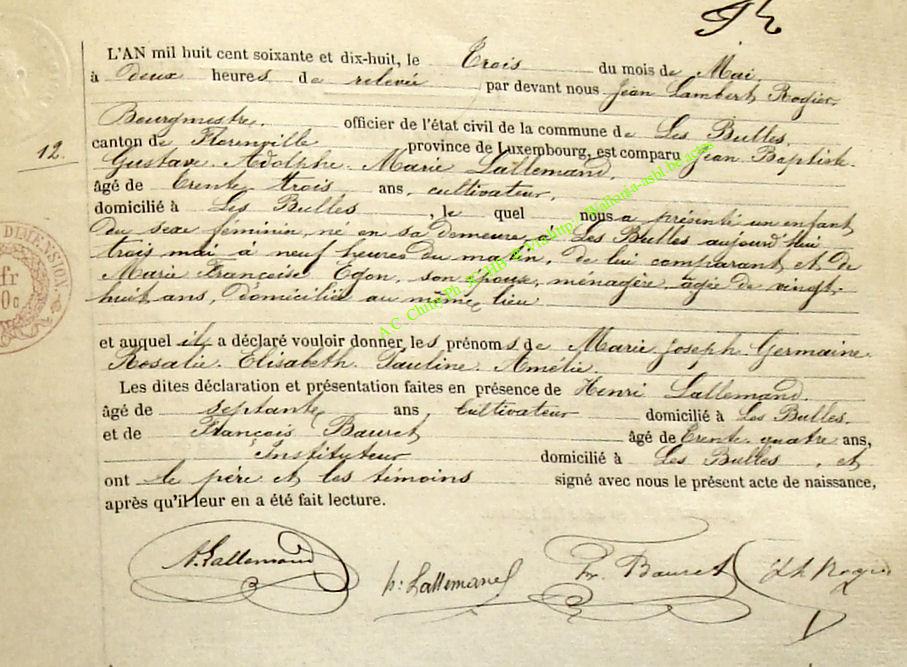 L'AN mil huit cent soixante et dix-huit, le Trois du mois de Mai.
à deux heures de relevée par devant nous Jean Lambert Rogier,
Bourgmestre, officier de l'état civil de la commune de Les Bulles,
12. canton de Florenville province de Luxembourg, est comparu Jean Baptiste
Gustave Adolphe Marie Lallemand,
âgé de trente trois ans, cultivateur,
domicilié à Les Bulles, le quel nous a présenté un enfant
du sexe féminin, né en sa demeure à Les Bulles aujourd'hui
trois mai à neuf heures du matin, de lui comparant et de
Marie Françoise son épouse, ménagère agée de vingt-
huit ans, domiciliée au même lieu
et auquel il a déclaré vouloir donner les prénoms de Marie Joseph Germaine
Rosalie Elisabeth Pauline Amélie
Les dites déclaration et présentation faites en présence de Henri Lallemand
âgé de septante ans, Cultivateur domicilié à Les Bulles
et de François Bauret âgé de trente quatre ans,
Instituteur domicilié à Les Bulles, et
ont le père et les témoins signé avec nous le présent acte de naissance,
après qu'il leur en a été fait lecture.
Lallemand h: Lallemand Fr. Bauret Rogier
DIMENSION